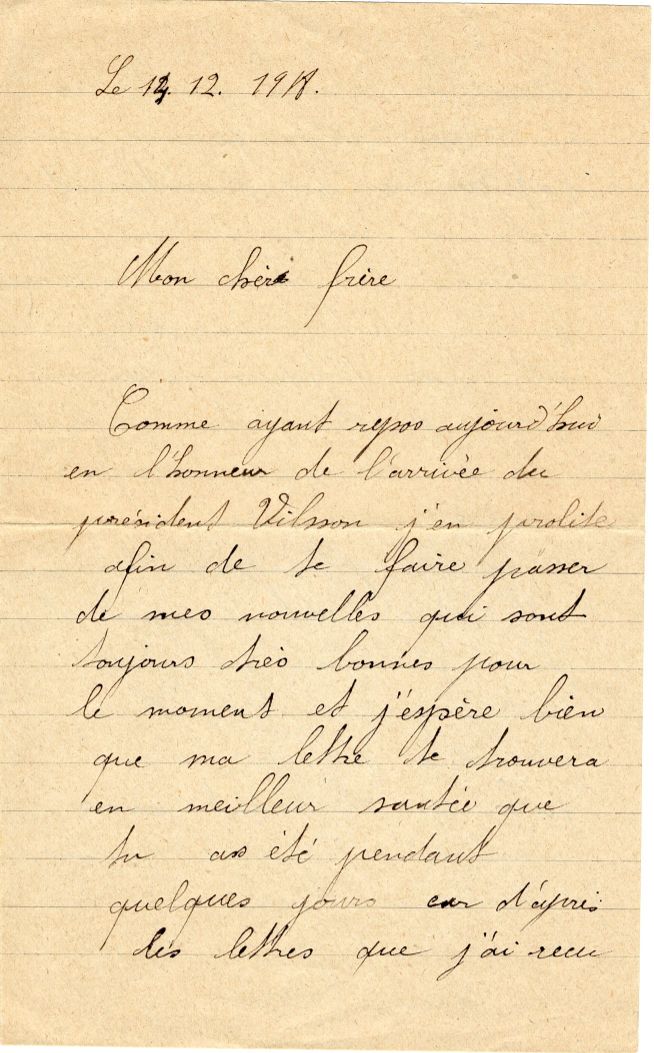 Le 14. 12. 1918.
Mon chère frère
Comme ayant repos aujourd'hui
en l'honneur de l'arrivée du
président Vilsson j'en profite
afin de te faire passer
de mes nouvelles qui sont
toujours très bonnes pour
le moment et j'espère bien
que ma lettre te trouvera
en meilleur santée que
tu as été pendant
quelques jours car d'après
les lettres que j'ai recu